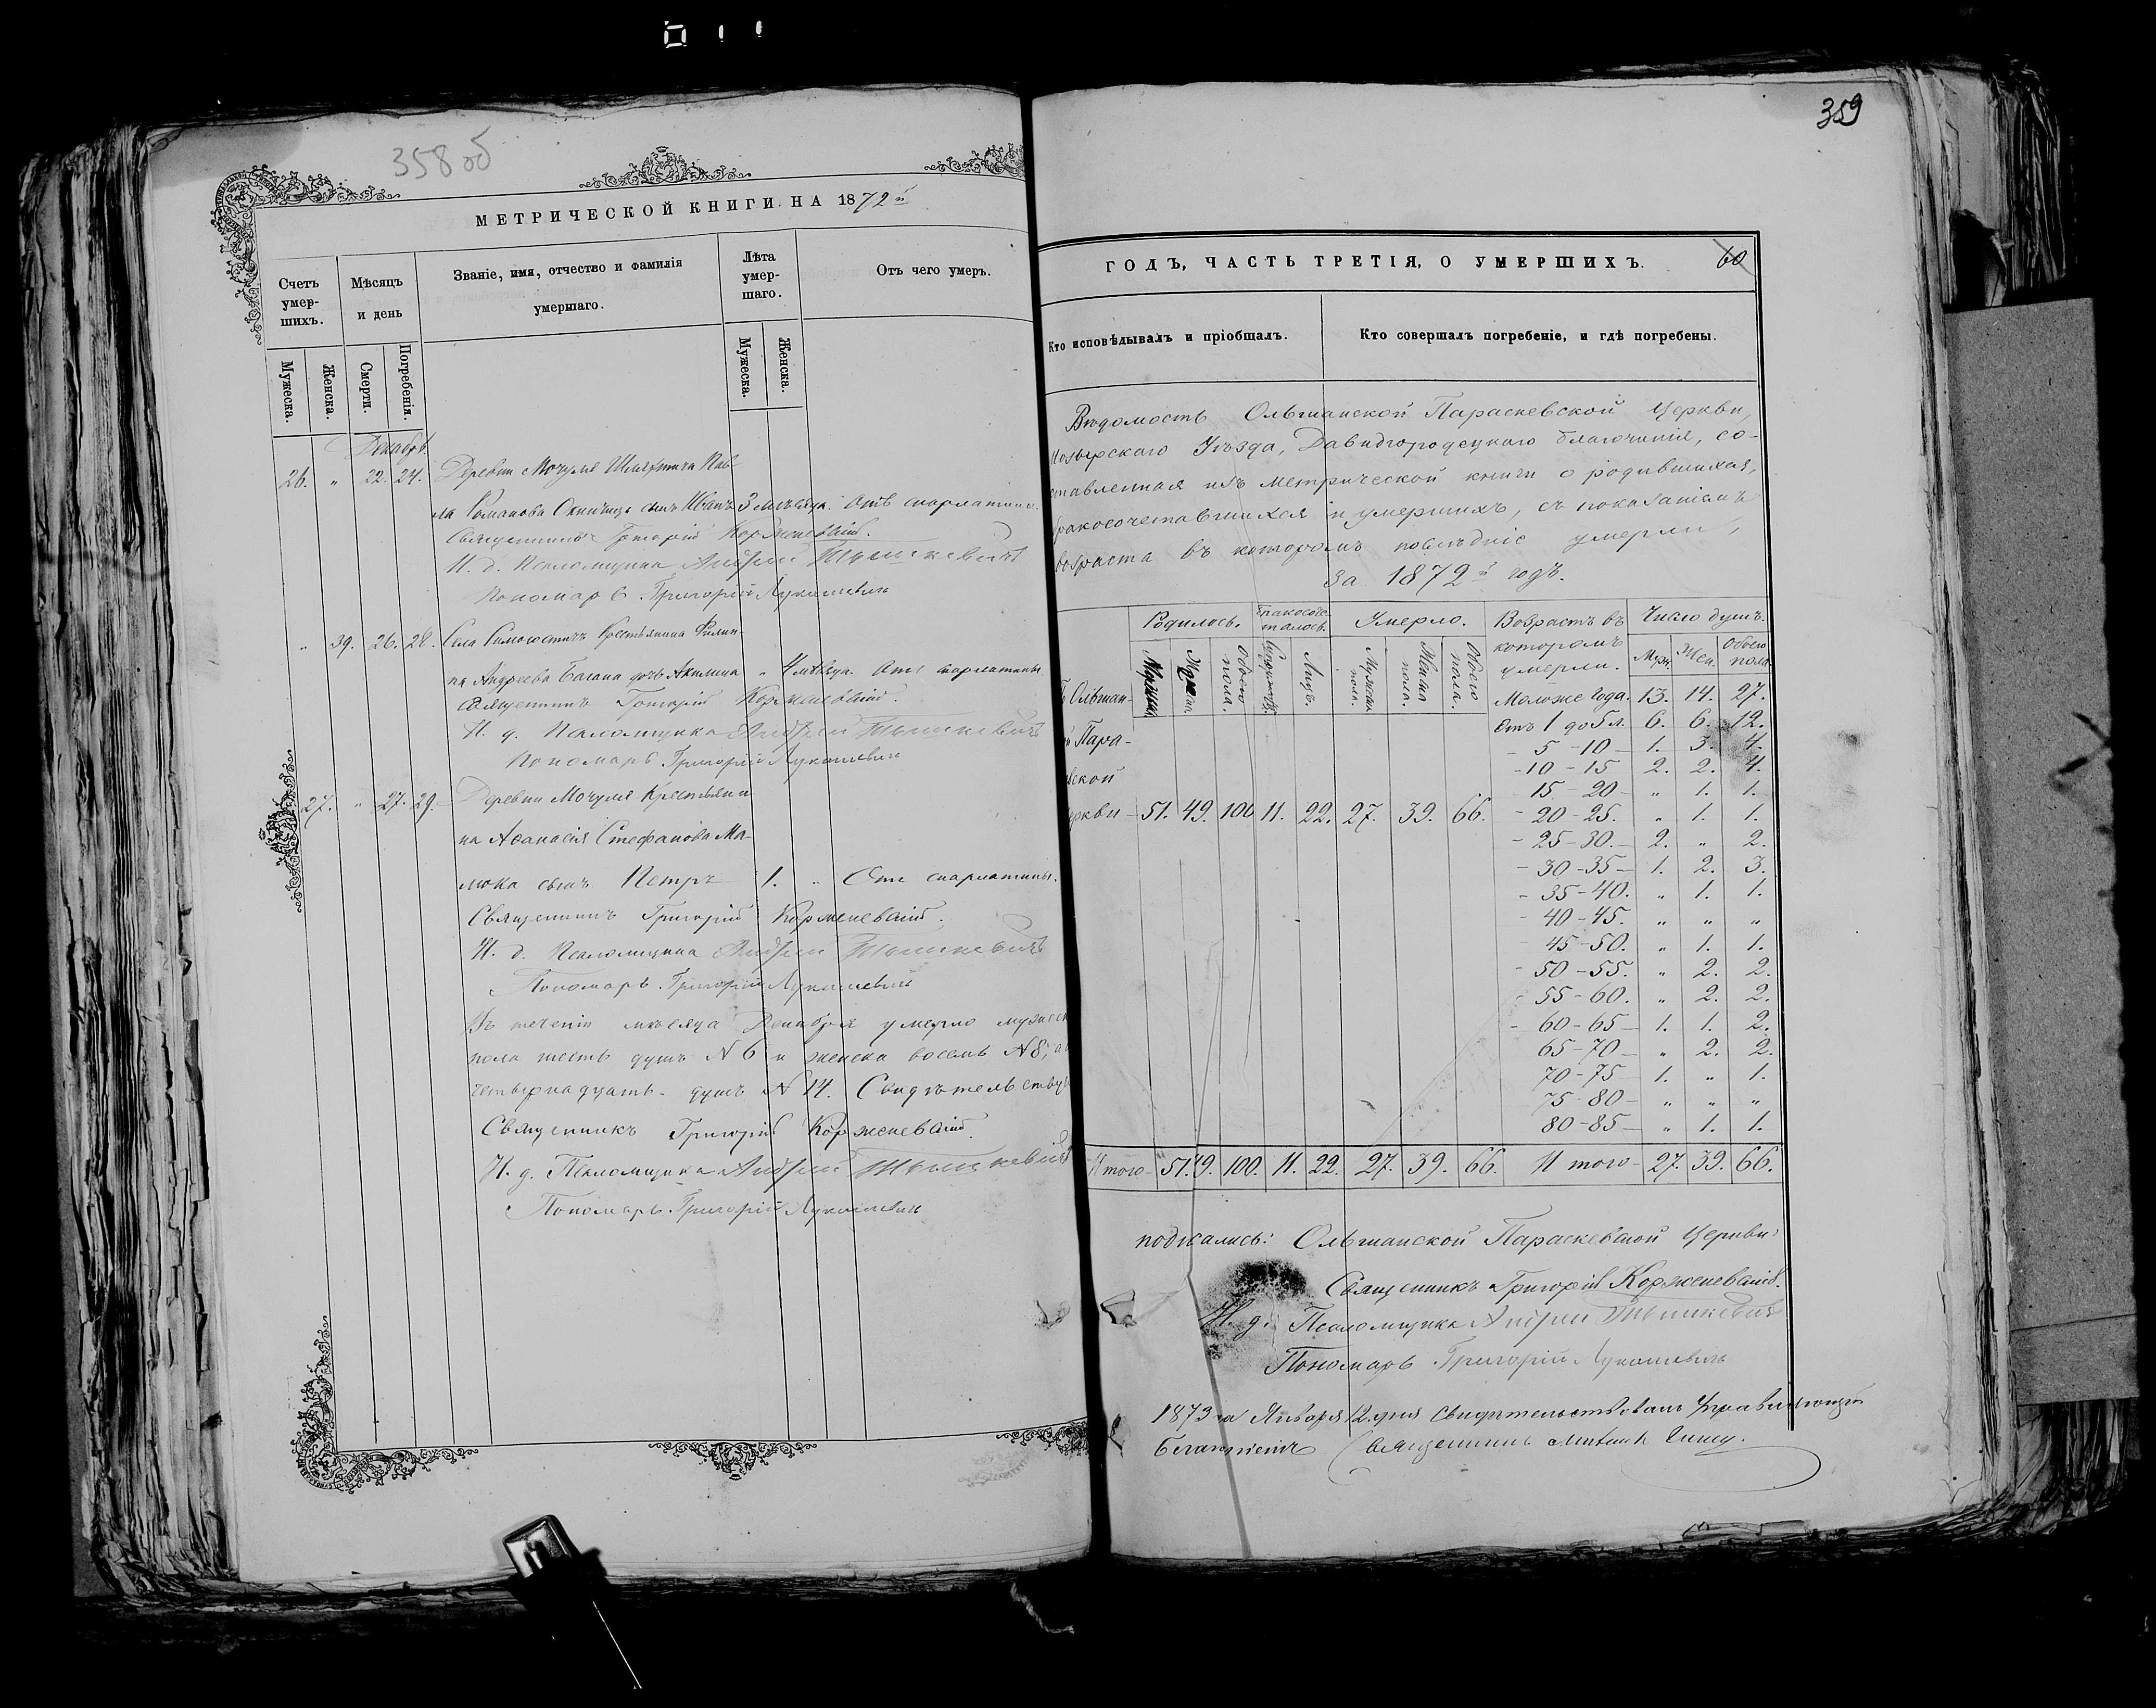 358 об
МЕТРИЧЕСКОЙ КНИГИ НА 1872й
Счетъ умер-шихъ.
Мѣсяцъ и день
Званіе, имя, отчество и фамилія умершаго.
Лѣта умер-шаго.
Отъ чего умеръ.
Мужеска.
Женска.
Смерти.
Погребенія.
Мужеска.
Женска.
Декабрь
26. " 22. 24. Деревни Мочуля Шляхтича Пав-
ла Романова сынъ Иванъ 3 мѣсяца. Отъ скарлатины.
Священникъ Григорій Корженевскій.
И. д. Псаломщика Андрей Тышкевичъ
Пономарь Григорій Лукашевичъ
" 39. 26. 28. Села Крестьянина Филип-
па Андреева дочь Акилина " 4 мѣсяца. Отъ скарлатины
Священникъ Григорій Корженевскій.
И. д. Псаломщика Андрей Тышкевичъ
Пономарь Григорій Лукашевичъ
27. " 27. 29. Деревни Мочуля Крестьяни-
на Аѳанасія Стефанова Ма-
люка сынъ Петръ 1. " Отъ скарлатины.
Священникъ Григорій Корженевскій.
И. д. Псаломщика Андрей Тышкевичъ
Пономарь Григорій Лукашевичъ
Въ теченіи мѣсяца Декабря умерло мужеск
пола шесть душъ № 6 и женска восемь № 8;
четырнадцать душъ № 14. Свидѣтельству
Священникъ Григорій Корженевскій.
И. д. Псаломщика Андрей Тышкевичъ
Пономарь Григорій Лукашевичъ
359
ГОДЪ, ЧАСТЬ ТРЕТІЯ, О УМЕРШИХЪ.
60
Кто исповѣдывалъ и пріобщалъ.
Кто совершалъ погребеніе, и гдѣ погребены.
Вѣдомость Ольшанской Параскевской Церкви,
Мозырскаго Уѣзда, Давидгородецкаго благочинія, со-
ставленная изъ метрической книги о родившихся,
бракосочетавшихся и умершихъ, съ показаніемъ
возраста въ которомъ послѣдніе умерли,
за 1872й годъ.
Родилось. Бракосоче-талось. Умерло. Возрастъ въ которомъ умерли. Число душъ.
Обоего пола. Лицъ. Мужеска пола. Женска пола. Обоего пола. Муж. Жен. Обоего пола.
Моложе года. 13. 14. 27.
Отъ 1 до 5 л. 6. 6. 12.
- 5 - 10 - 1. 3. 4.
- 10 - 15 2. 2. 4.
15 - 20 - " 1. 1.
Ольшан-
Пара-
вской
церкви - 51. 49. 100 11. 22. 27. 39. 66.
- 20 - 25. " 1. 1.
- 25 - 30. - 2. " 2.
- 30 - 35 - 1. 2. 3.
- 35 - 40. " 1. 1.
- 40 - 45. " " "
45 - 50. " 1. 1.
- 50 - 55. " 2. 2.
- 55 - 60. " 2. 2.
- 60 - 65 - 1. 1. 2.
65 - 70 - " 2. 2.
70 - 75 1. " 1.
75 - 80 - " " "
80 - 85 - " 1. 1.
Итого - 51. 49. 100. 11. 22. 27. 39. 66. Итого - 27. 39. 66.
подписались: Ольшанской Параскевской Церкви
Священникъ Григорій Корженевскій.
И. д. Псаломщика Андрей Тышкевичъ
Пономарь Григорій Лукашевичъ
1873 Января 12 дня свидѣтельствовалъ Управляющій
Благочиніемъ Священникъ